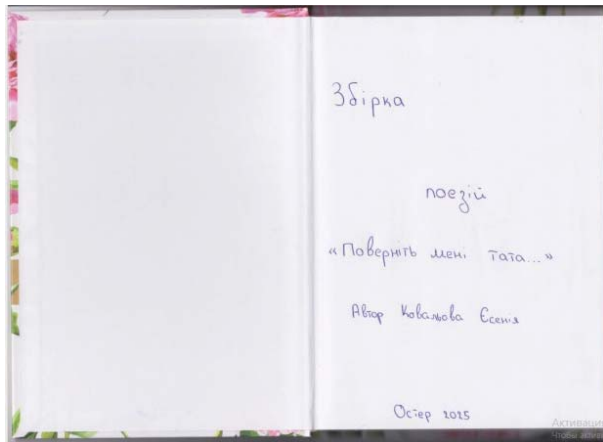 Збірка
поезій
«Поверніть мені тата...»
Автор Ковальова Єсенія
Остер 2025
Активация